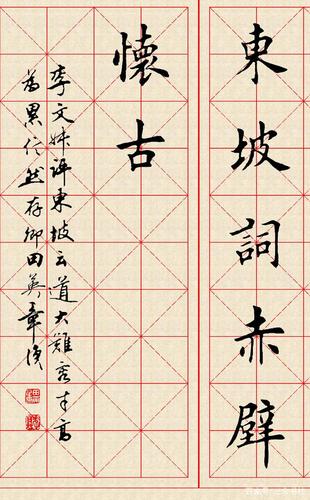 東坡詞赤壁
懷古
李文妹評東坡云道大難容才高
為累信然存卿田英章漫